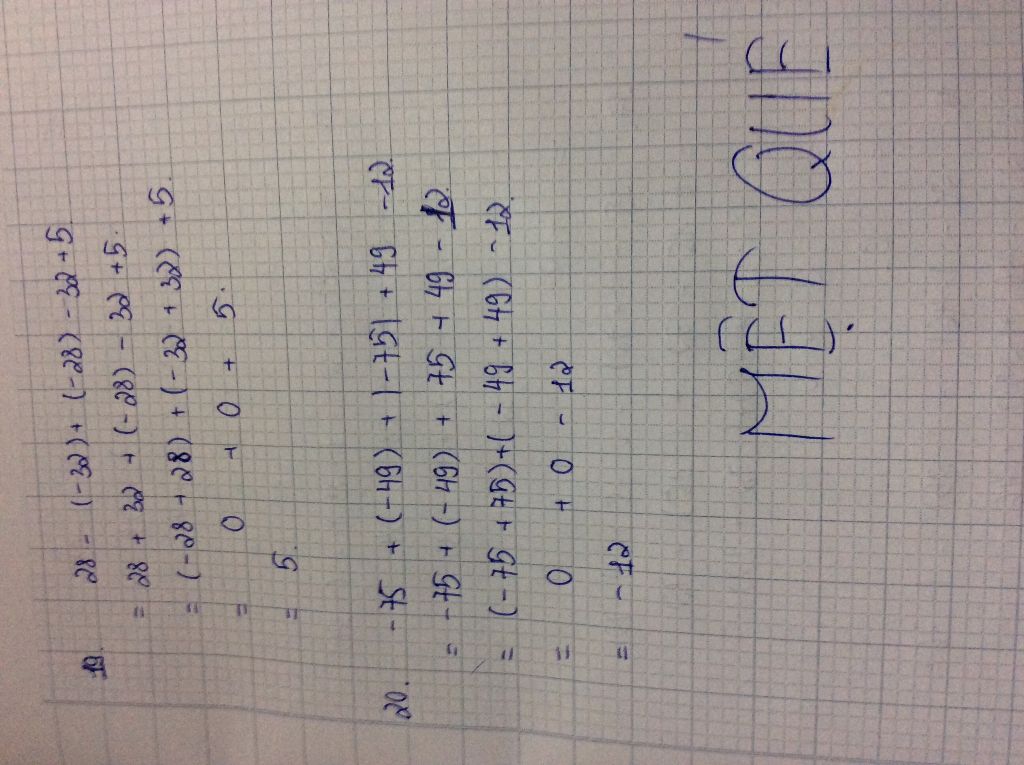 19. 28 - (-32) + (-28) - 32 + 5.
= 28 + 32 + (-28) - 32 + 5.
= (-28 + 28) + (-32 + 32) + 5.
= 0 + 0 + 5.
= 5.
20. -75 + (-49) + |-75| + 49 - 12.
= -75 + (-49) + 75 + 49 - 12.
= (-75 + 75) + (-49 + 49) - 12.
= 0 + 0 + 0 - 12
= -12
MỆT QUÉ